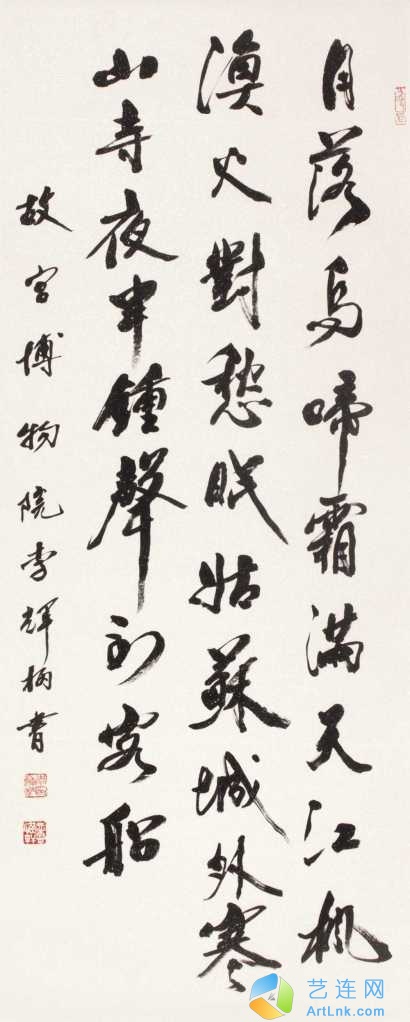 月落烏啼霜滿天江楓
漁火對愁眠姑蘇城外寒
山寺夜半鍾聲到客船
故宮博物院李輝柄書
艺连网
ArtLnk.com